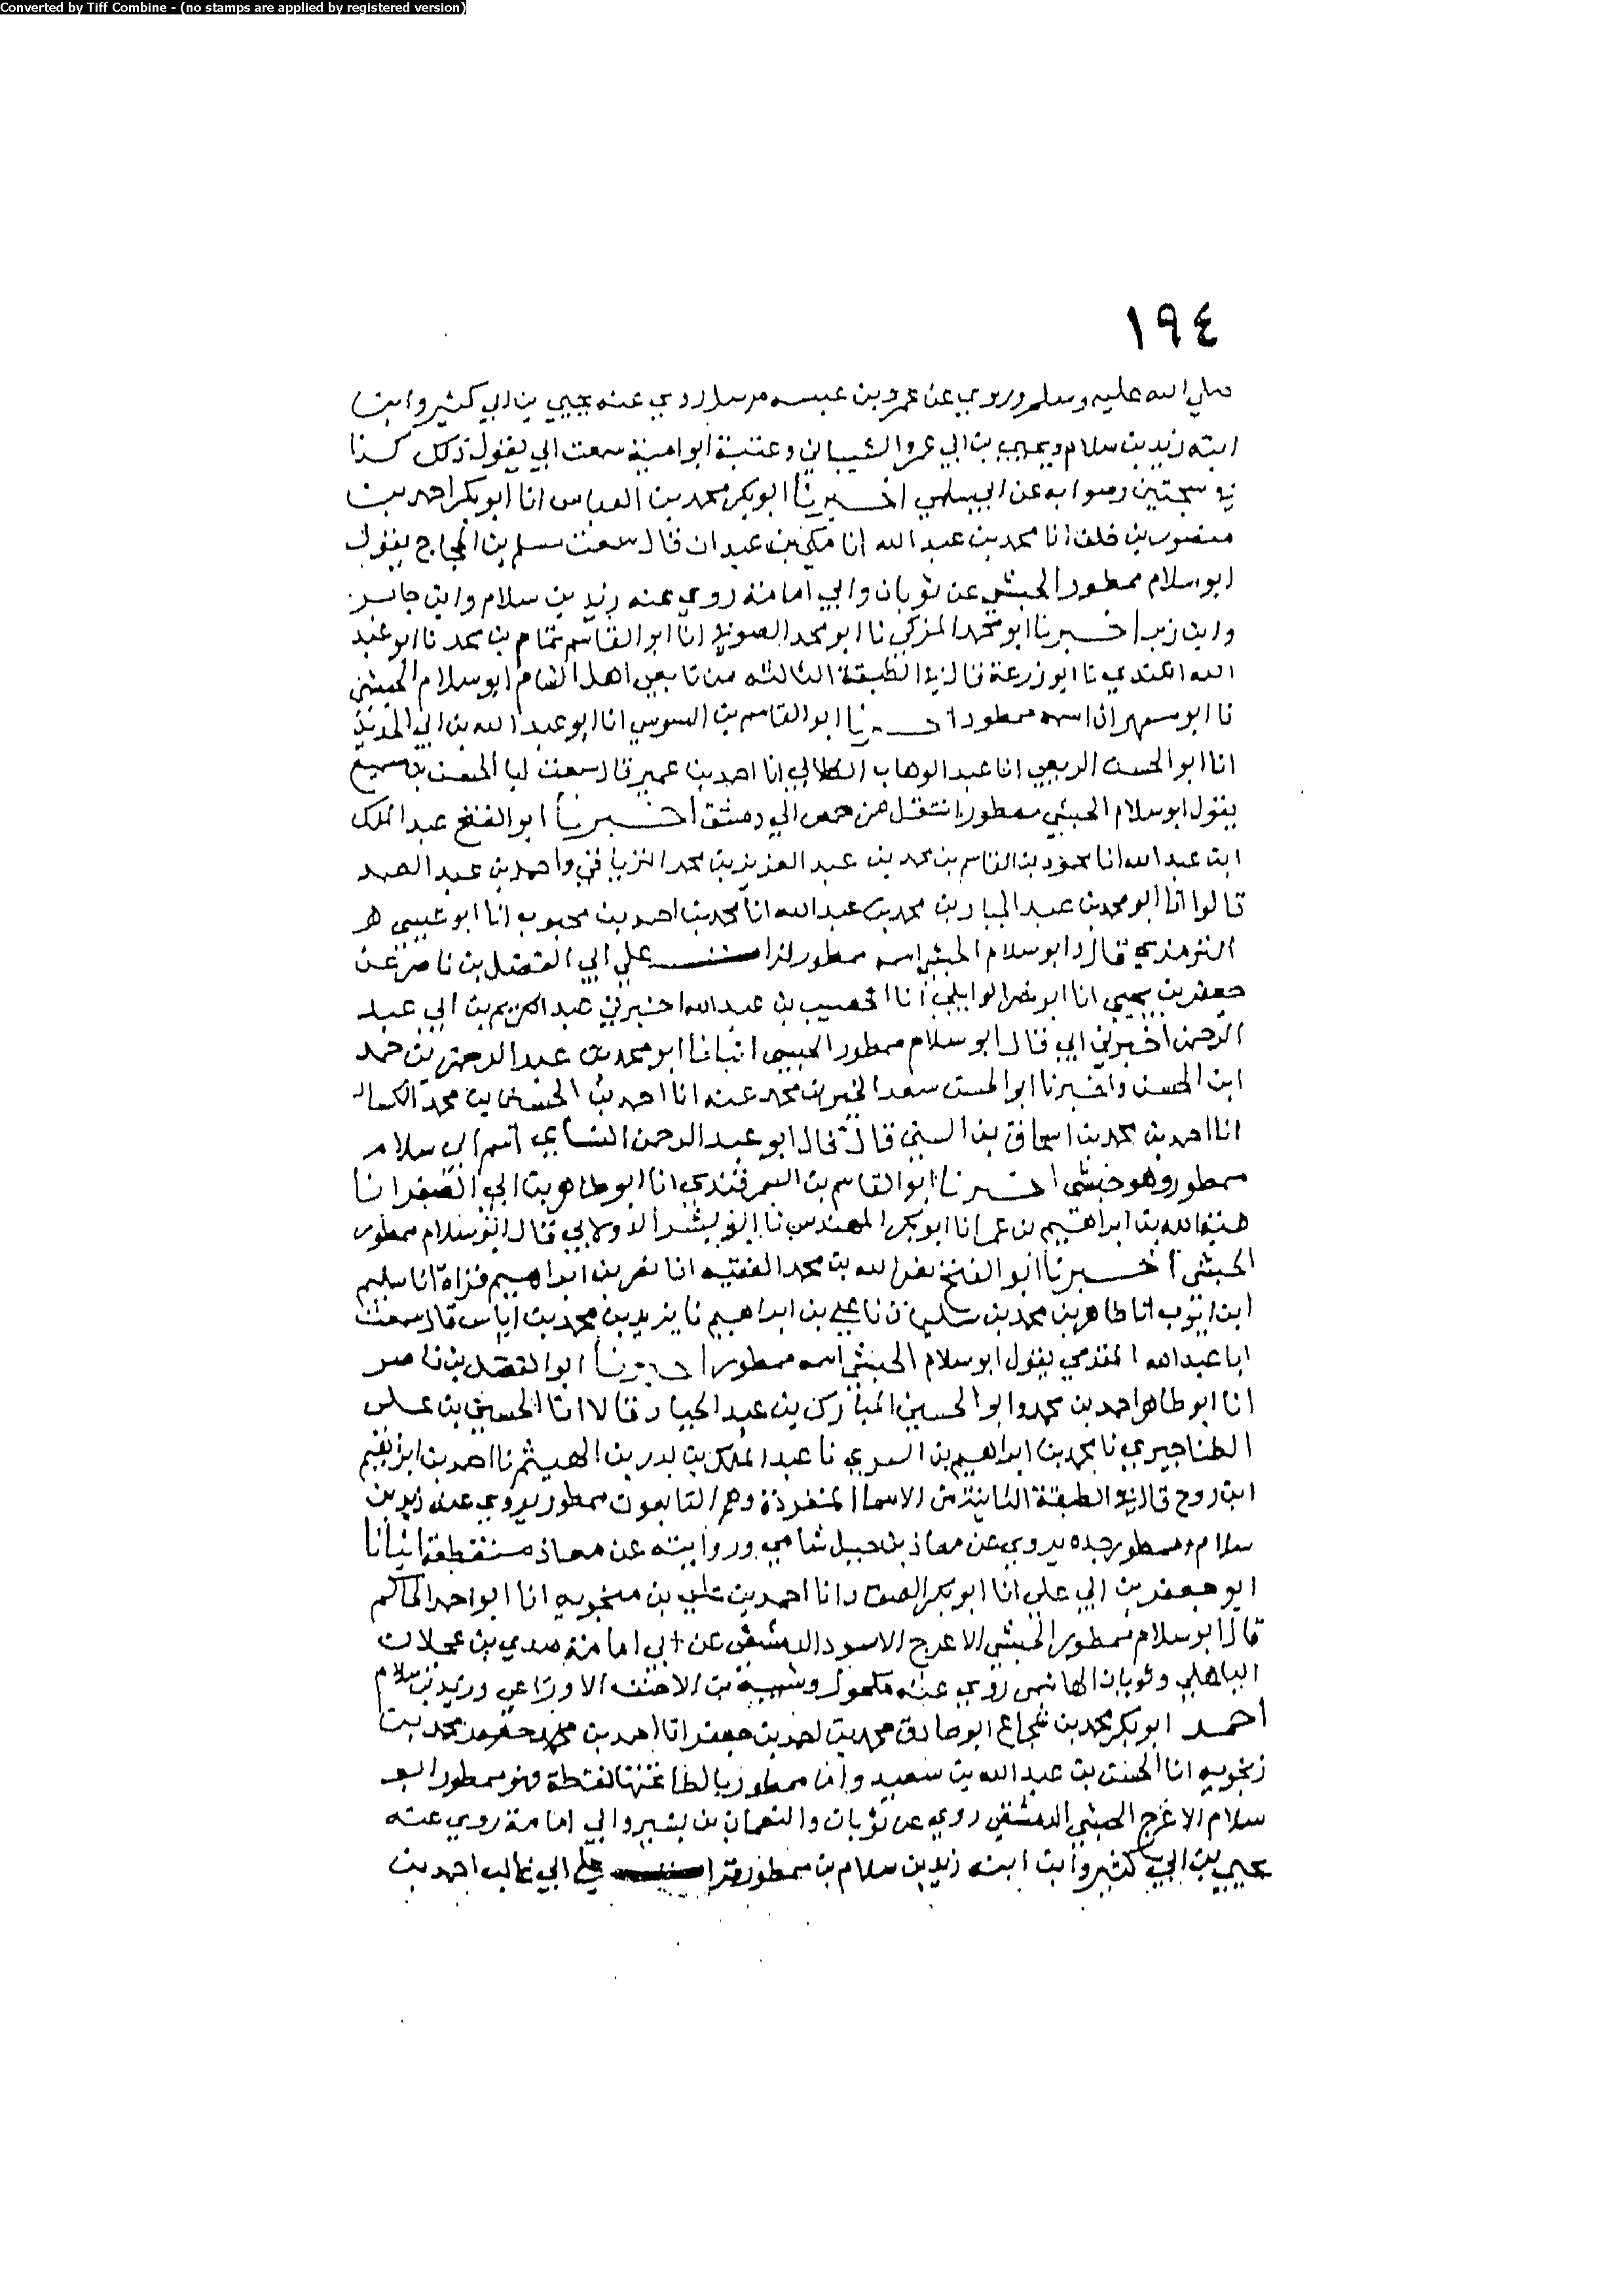 Converted by Tiff Combine - (no stamps are applied by registered version)
١٩٤
صلي الله عليه وسلم وروي عن عمرو بن عبسه مرسلا روي عنه يحيي بن ابي كثير وابن
ابنه زيد بن سلام ويحيي بن ابي عمرو الشيباني وعتبة ابو امية سمعت ابي يقول ذلك كذا
في نسختين وصوابه عن ابي سلمي اخبرنا ابو بكر محمد بن العباس انا ابو بكر احمد بن
منصور بن خلف انا محمد بن عبد الله انا مكي بن عبدان قال سمعت مسلم بن الحجاج يقول
ابو سلام ممطور الحبشي عن ثوبان وابي امامة روي عنه زيد بن سلام وابن جابر
وابن زبر اخبرنا ابو محمد المزكي نا ابو محمد الصوفي انا ابو القاسم تمام بن محمد نا ابو عبد
الله الكندي نا ابو زرعة قال في الطبقة الثالثه من تابعي اهل الشام ابو سلام الحبشي
نا ابو مسهر ان اسمه ممطور اخبرنا ابو القاسم بن السوسي انا ابو عبد الله بن ابي الحديد
انا ابو الحسن الربعي انا عبد الوهاب الكلابي انا احمد بن عمير قال سمعت ابا الحسن بن سميع
يقول ابو سلام الحبشي ممطور انتقل من حمص الي دمشق اخبرنا ابو الفتح عبد الملك
ابن عبد الله انا محمود بن القاسم بن محمد بن عبد العزيز بن محمد الترياقي واحمد بن عبد الصمد
قالوا انا ابو محمد بن عبد الجبار بن محمد بن عبد الله انا محمد بن احمد بن محبوب انا ابو عيسي هر
الترمذي قال وابو سلام الحبشي اسمه ممطور قرات علي ابي الفضل بن ناصر عن
جعفر بن يحيي انا ابو نصر الوايلي انا الخصيب بن عبد الله اخبرني عبد الكريم بن ابي عبد
الرحمن اخبرني ابي قال ابو سلام ممطور الحبشي انبانا ابو محمد بن عبد الرحمن بن حمد
ابن الحسن واخبرنا ابو الحسن سعد الخير بن محمد عنه انا احمد بن الحسين بن محمد الكسار
انا احمد بن محمد بن اسحاق بن السني قال قال ابو عبد الرحمن النساي اسم ابي سلام
ممطور وهو حبشي اخبرنا ابو القاسم بن السمرقندي انا ابو طاهر بن ابي الصقر انا
هبة الله بن ابراهيم بن عمر انا ابو بكر المهندس نا ابو بشر الدولابي قال ابو سلام ممطور
الحبشي اخبرنا ابو الفتح نصر الله بن محمد الفقيه انا نصر بن ابراهيم قراة انا سليم
ابن ايوب انا طاهر بن محمد بن سليمان نا علي بن ابراهيم نا يزيد بن محمد بن اياس قال سمعت
ابا عبد الله المقدمي يقول ابو سلام الحبشي اسمه ممطور اخبرنا ابو الفضل بن ناصر
انا ابو طاهر احمد بن محمد وابو الحسين المبارك بن عبد الجبار قالا انا الحسين بن علي
الطناجيري نا محمد بن ابراهيم بن السري نا عبد الملك بن بدر بن الهيثم نا احمد بن
ابن روح قال في الطبقة الثانية من الاسما المنفردة وهم التابعون ممطور يروي عنه زيد بن
سلام وممطور جده يروي عن معاذ بن جبل شامي وروايته عن معاذ منقطعة انبانا
ابو جعفر بن ابي علي انا ابو بكر الصفار انا احمد بن علي بن منجويه انا ابو احمد الحاكم
قال ابو سلام ممطور الحبشي الاعرج الاسود الدمشقي عن ابي امامة صدي بن عجلان
الباهلي وثوبان الهاشمي روي عنه مكحول وشيبة بن الاحنف الاوزاعي وزيد بن سلام
احمد ابو بكر محمد بن شجاع ابو صادق محمد بن احمد بن جعفر انا احمد بن محمد بن
زنجويه انا الحسن بن عبد الله بن سعيد واما ممطور بالطا تحتها نقطة فهو ممطور ابو
سلام الاعرج الحبشي الدمشقي روي عن ثوبان والنعمان بن بشير وابي امامة روي عنه
يحيي بن ابي كثير وابن ابنه زيد بن سلام بن ممطور قرات علي ابي غالب احمد بن